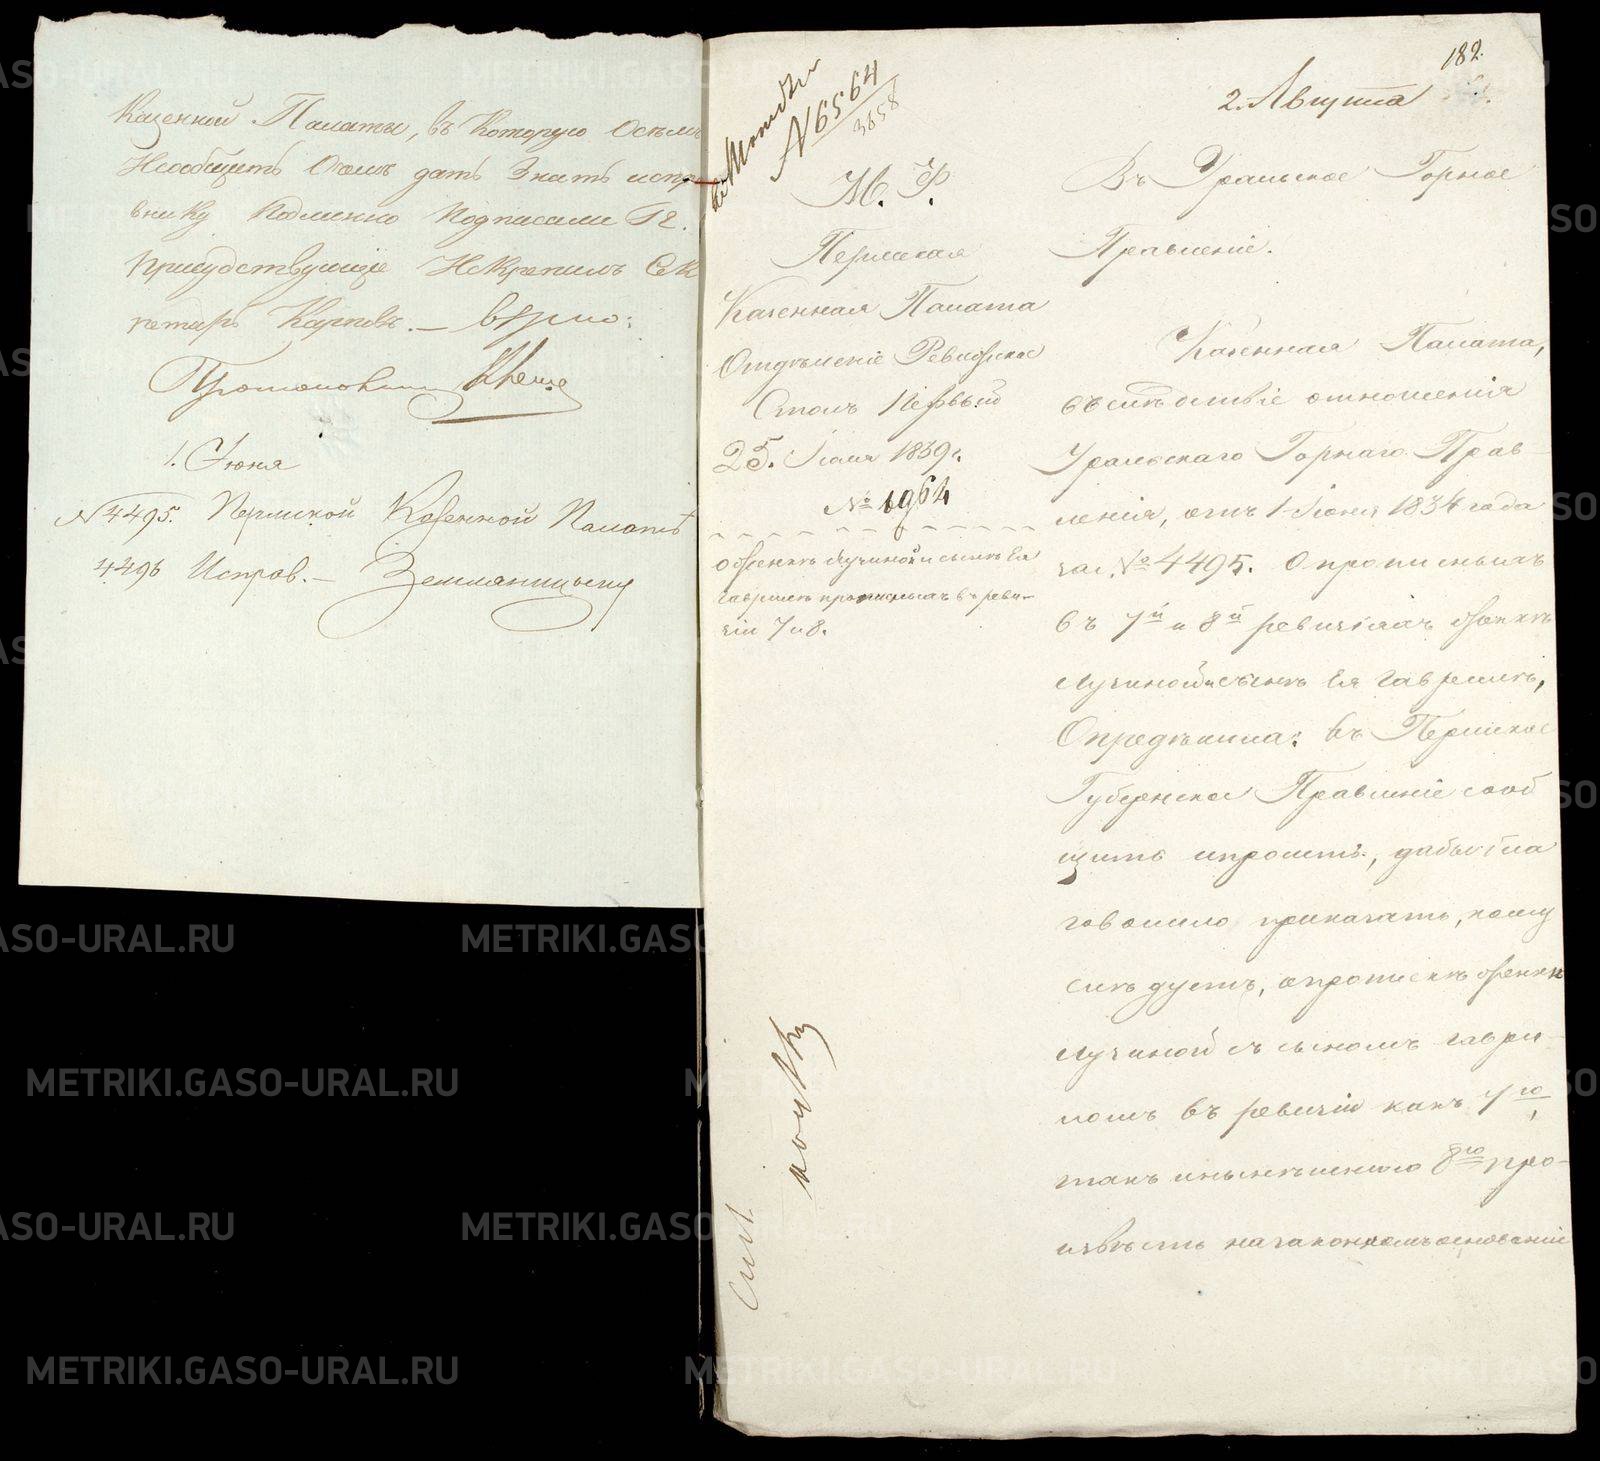 Казенной Палаты, въ которую Осемъ
Исообщить Очемъ дать Знать испра
внику Подлинно Подписали Гг.
Присудствующіе Искрепилъ Сек
ретарь Карповъ. — Верно:
Протоколистъ
1. Іюня
№ 4495. Пермской Казенной Палатѣ
4496 Исправ. — Земляницыну
182.
2. Августа
№ 6564
3658
М. Ф.
Пермская
Казенная Палата
Отдѣленіе Ревизское
Столъ Первый
25. Іюля 1839 г.
№ 1964
О женкѣ Лучиной и сынѣ Ея
Гаврилѣ прописныхъ въ реви-
зіи 7 и 8.
Въ Уральское Горное
Правленіе.
Казенная Палата,
въ слѣдствіе отношенія
Уральскаго Горнаго Прав-
ленія, отъ 1 Іюня 1834 года
за № 4495. О прописныхъ
въ 7й и 8й ревизіяхъ женкѣ
Лучиной и сынѣ Ея Гаврилѣ,
Опредѣлила: въ Пермское
Губернское Правленіе сооб
щить и просить, дабы бла
говолило приказать, кому
слѣдуетъ, о пропискѣ женки
Лучиной съ сыномъ Гаври-
ломъ въ ревизіи какъ 7го,
такъ и нынѣшнюю 8ю про-
извѣсть на законномъ основаніи